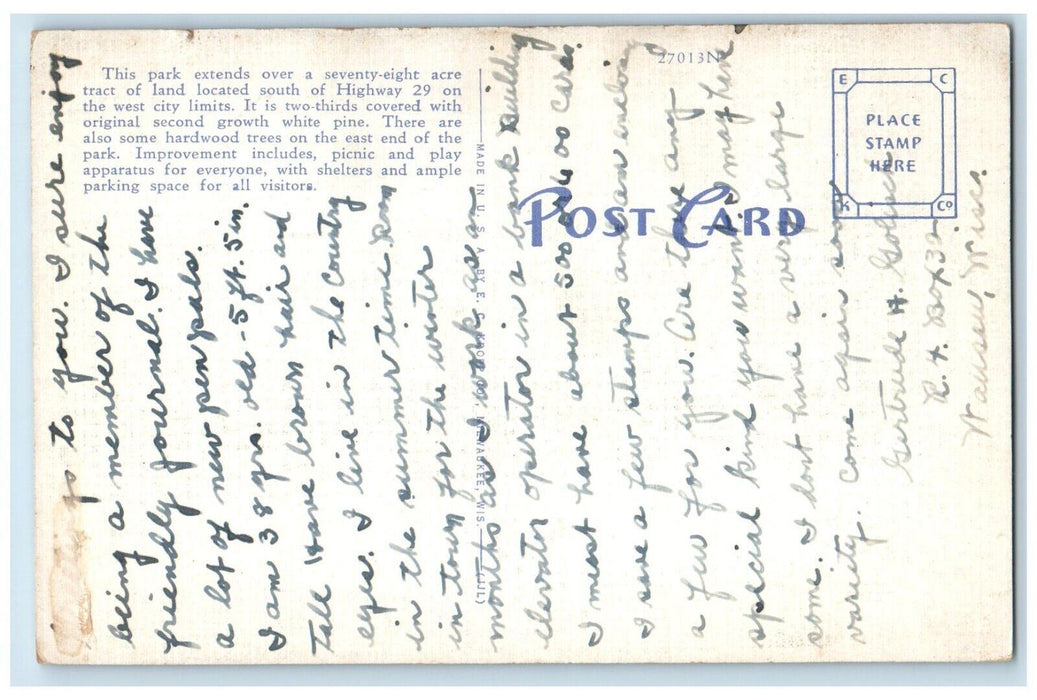 This park extends over a seventy-eight acre
tract of land located south of Highway 29 on
the west city limits. It is two-thirds covered with
original second growth white pine. There are
also some hardwood trees on the east end of the
park. Improvement includes, picnic and play
apparatus for everyone, with shelters and ample
parking space for all visitors.
27013N
E C
PLACE
STAMP
HERE
K Co
POST CARD
MADE IN U. S. A. BY E. C. KROPP CO., MILWAUKEE, WIS. (JJL)
to you. I sure enjoy
being a member of the
friendly journal. I have
a lot of new pen pals.
I am 38 yrs. old - 5 ft. 5 in.
tall have brown hair and
eyes. I live in the country
in the summer time. am
in town for the winter
months as I work as an
elevator operator in a bank building
I must have about 500 400 cards.
I save a few stamps and am
a few for you. Are there any
special kind you want I may have
some. I dont have a very large
variety. Come again soon
Gertrude H.
R. 4. Box 33
Wausau, Wisc.